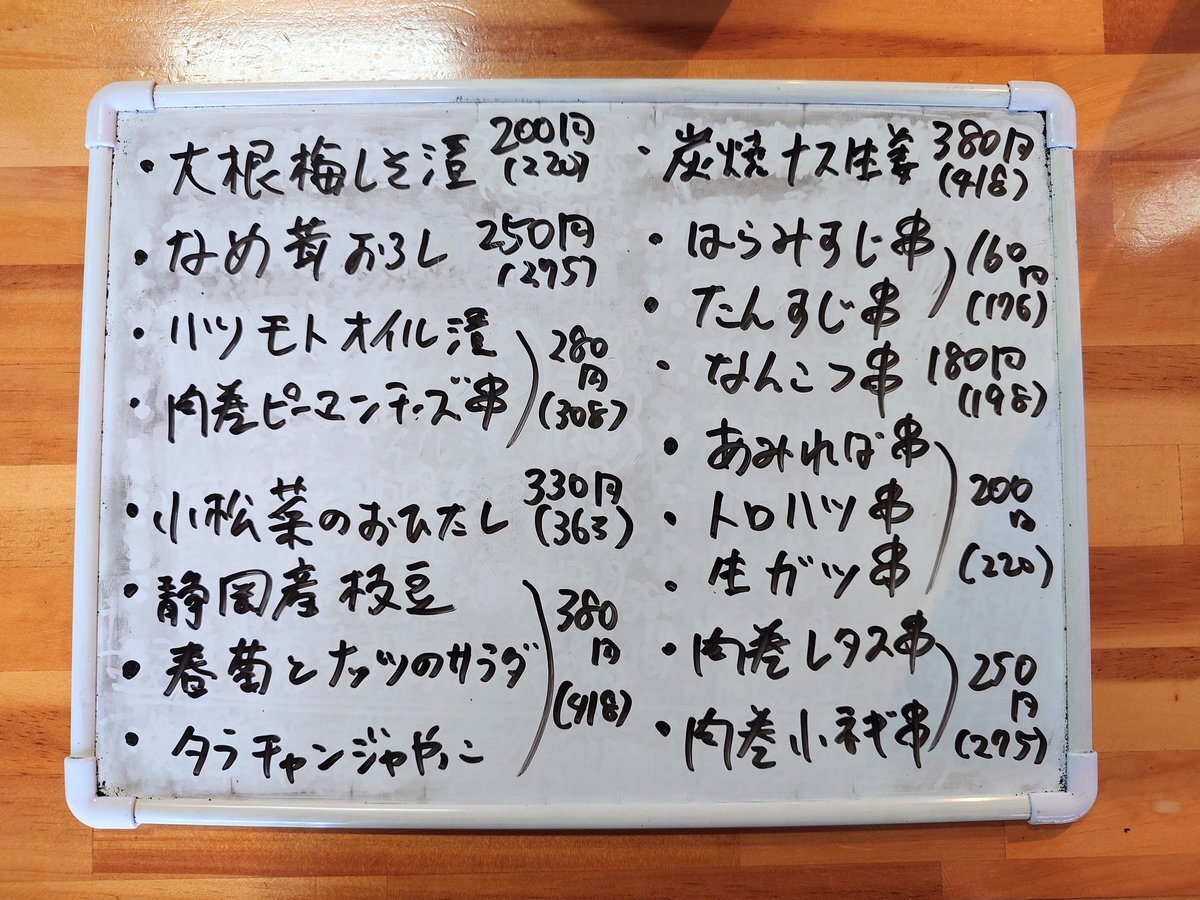 ・大根梅しそ漬 200円
(220)
・なめ茸おろし 250円
(275)
・ハツモトオイル漬
・肉巻ピーマンチーズ串
280
円
(308)
・小松菜のおひたし 330円
(363)
・静岡産枝豆
・春菊とナッツのサラダ
・タラチャンジャやっこ
380
円
(418)
・炭焼ナス生姜 380円
(418)
・はらみすじ串
・たんすじ串
160
円
(176)
・なんこつ串 180円
(198)
・あみればー串
・トロハツ串
・生ガツ串
200
円
(220)
・肉巻レタス串
・肉巻小ネギ串
250
円
(275)